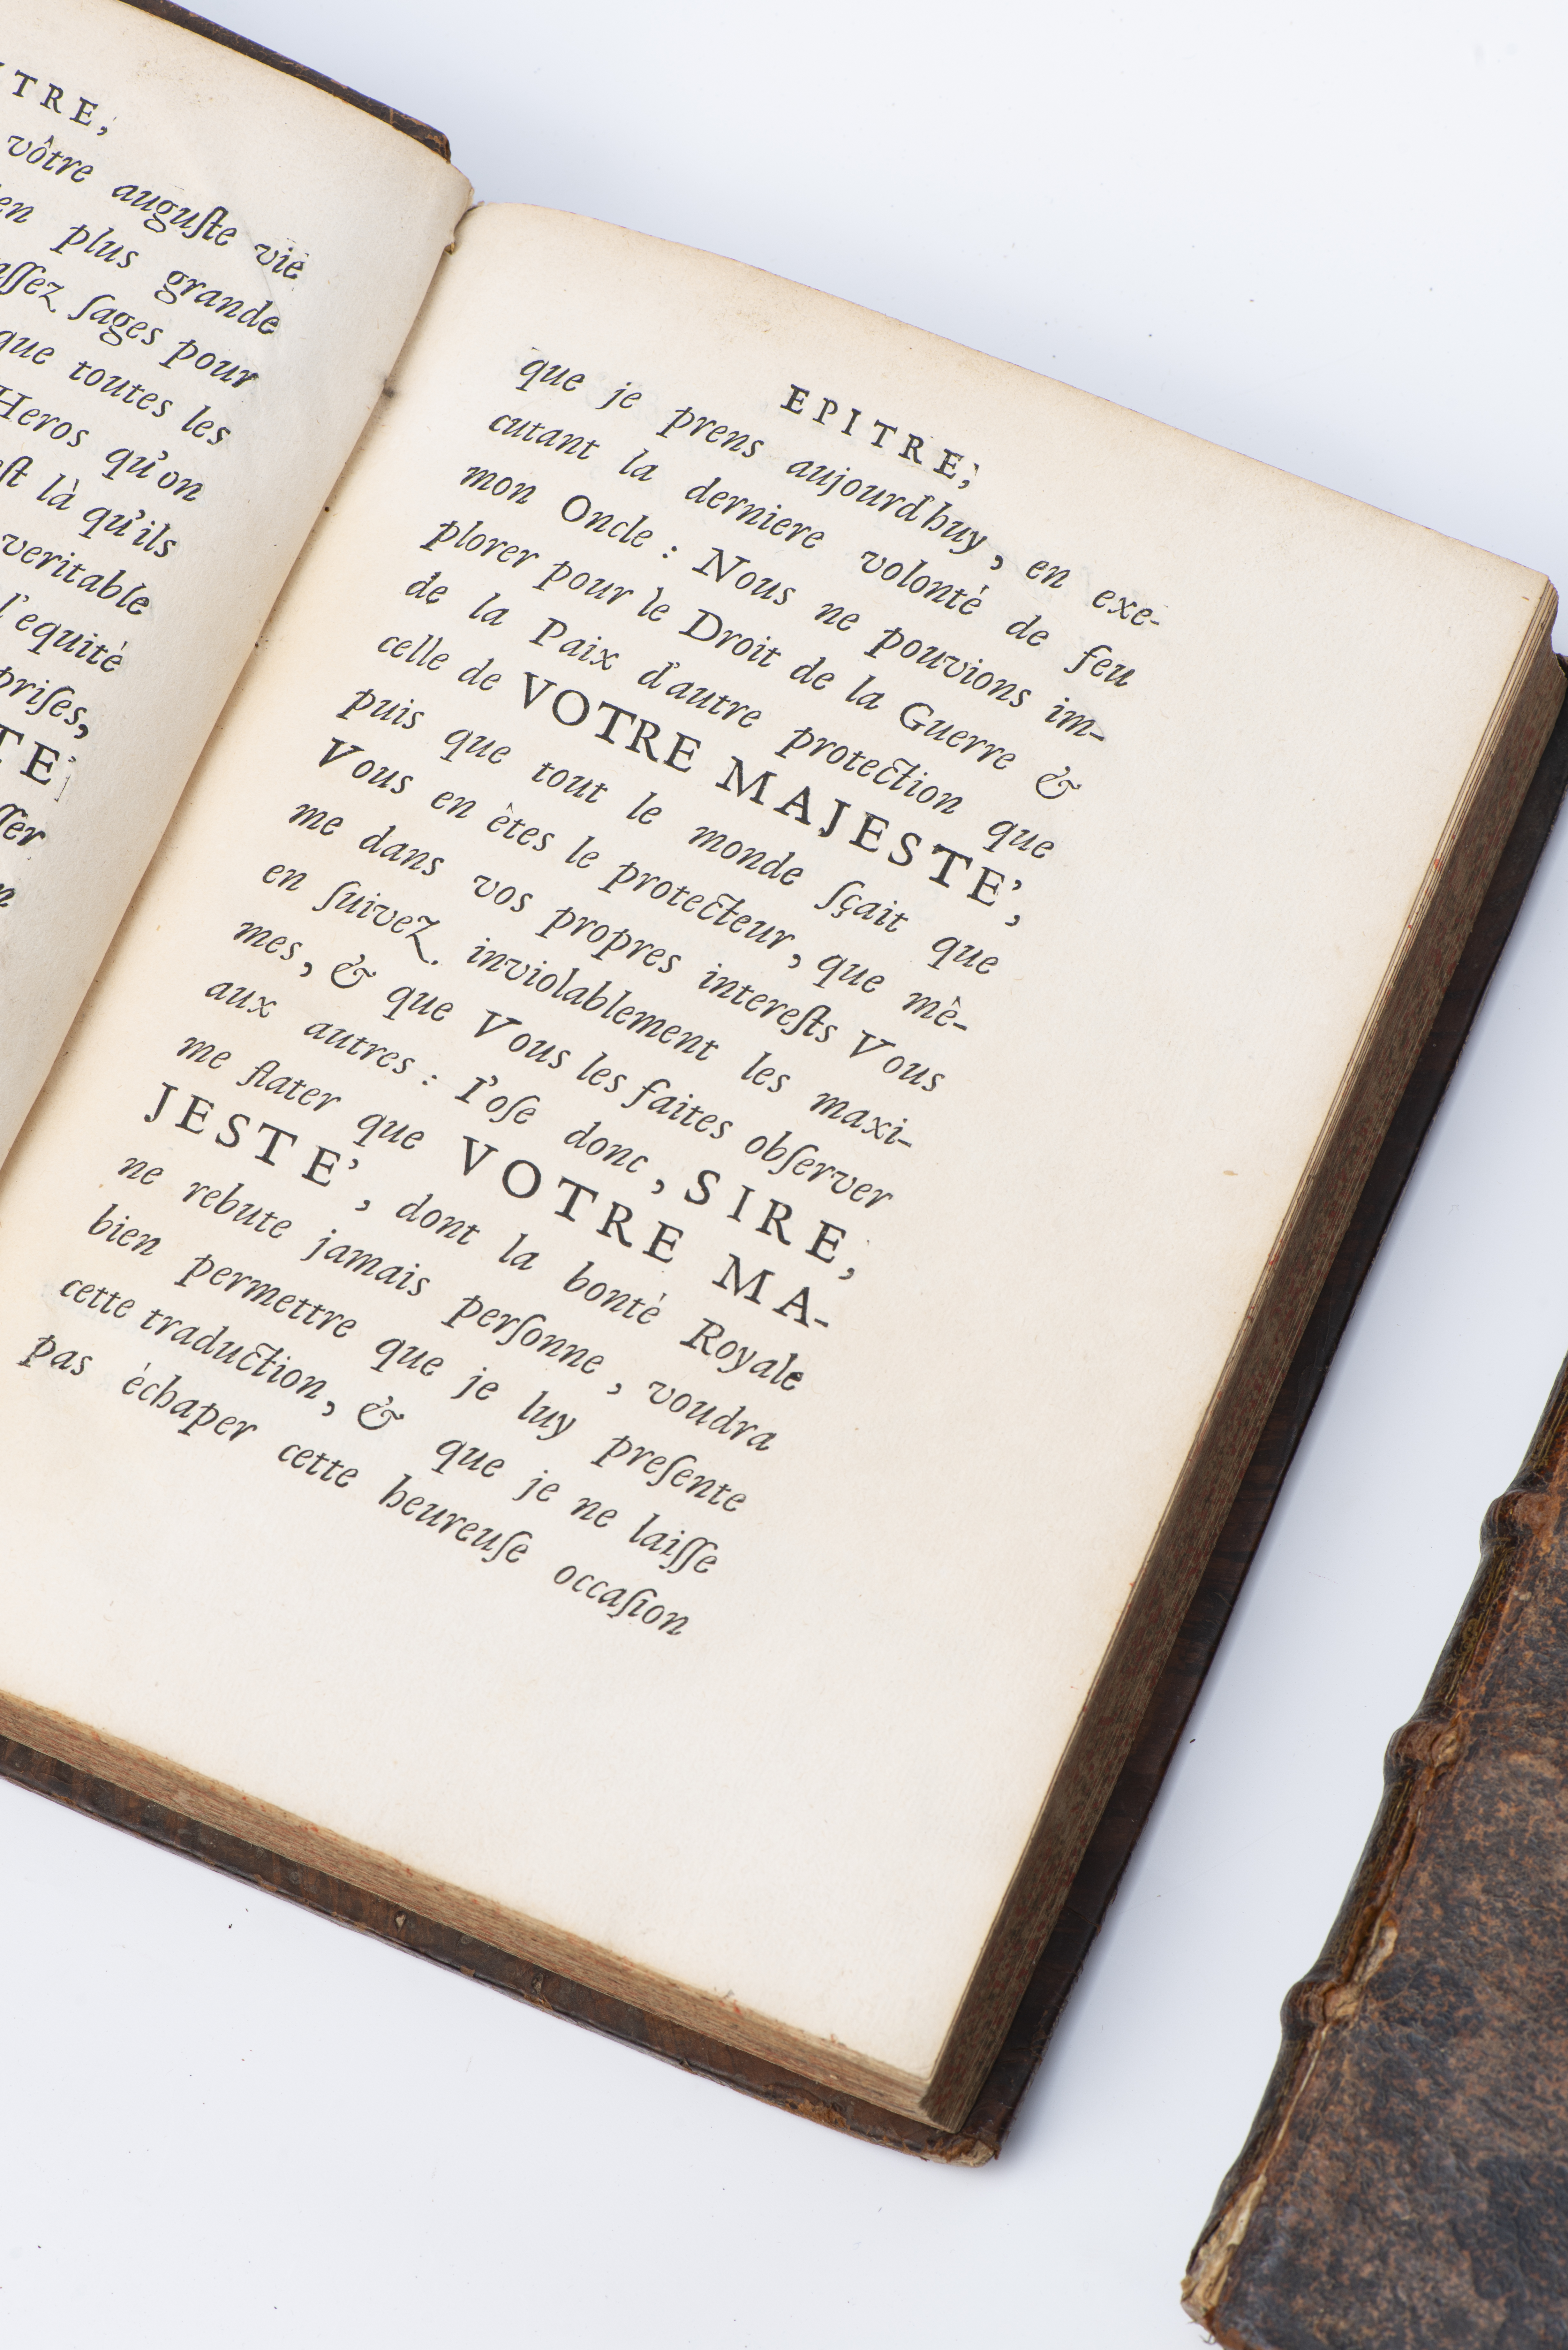 TRE,
vôtre auguſte vie
en plus grande
aſſez ſages pour
que toutes les
Heros qu'on
eſt là qu'ils
veritable
l'equité
priſes,
TE'
ſſer
n
EPITRE,
que je prens aujourd'huy, en exe-
cutant la derniere volonté de feu
mon Oncle : Nous ne pouvions im-
plorer pour le Droit de la Guerre &
de la Paix d'autre protection que
celle de VOTRE MAJESTE',
puis que tout le monde ſçait que
Vous en étes le protecteur, que mê-
me dans vos propres intereſts Vous
en ſuivez inviolablement les maxi-
mes, & que Vous les faites obſerver
aux autres : I'oſe donc, SIRE,
me flater que VOTRE MA-
JESTE', dont la bonté Royale
ne rebute jamais perſonne, voudra
bien permettre que je luy preſente
cette traduction, & que je ne laiſſe
pas échaper cette heureuſe occaſion